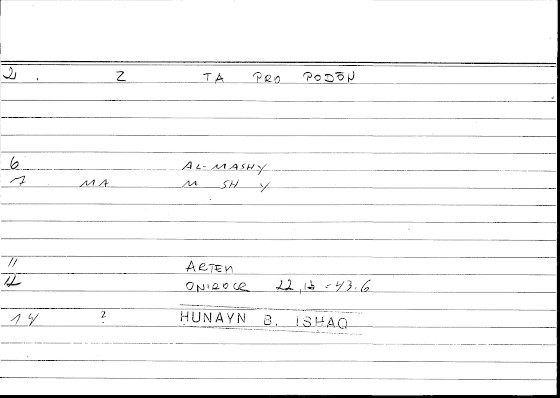 2 . Z TA PRO PODŌN
6 AL-MASHY
7 MA M SH Y
11 ARTEM
12 ONIROCR 22,13 - 43.6
14 ? HUNAYN B. ISHAQ